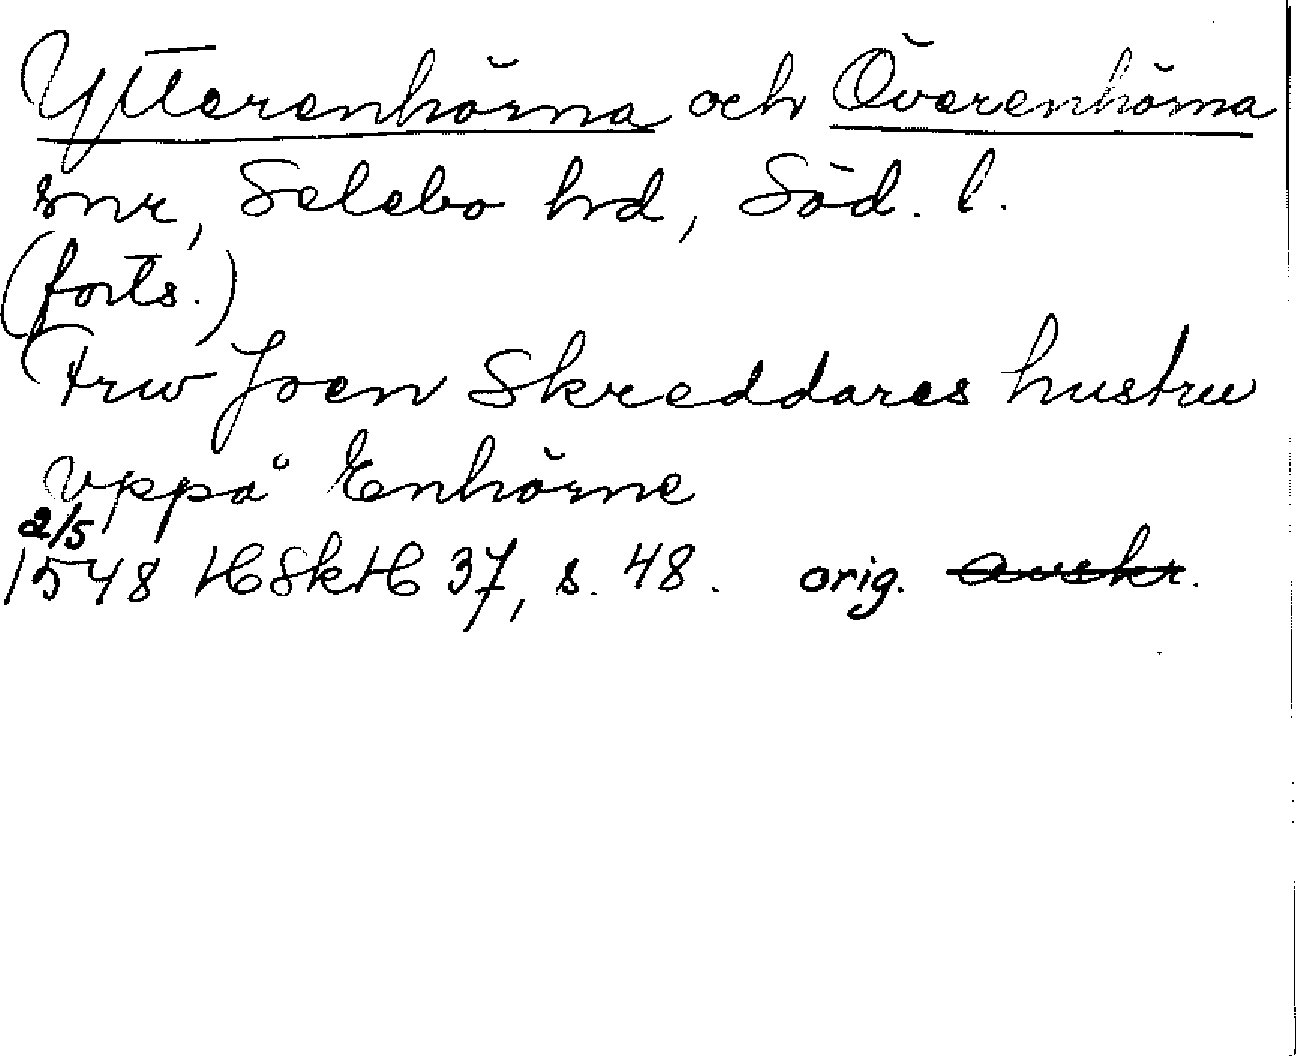 Ytterenhörna och Överenhörna
snr, Selebo hd, Söd. l.
(forts.)
Frw Joen Skreddares hustru
vppå Enhörne
2/5
1548 HSkH 37, s. 48. orig. avskr.